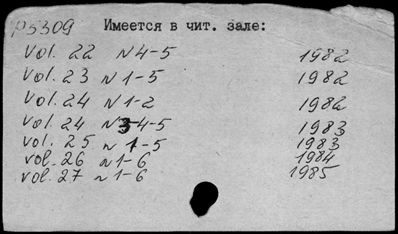 p5309 Имеется в чит. зале:
vol. 22 N 4-5 1982
vol. 23 N 1-5 1982
vol. 24 N 1-2 1982
vol. 24 N 3-4-5 1983
vol. 25 N 1-5 1983
vol. 26 N 1-6 1984
vol. 27 N 1-6 1985